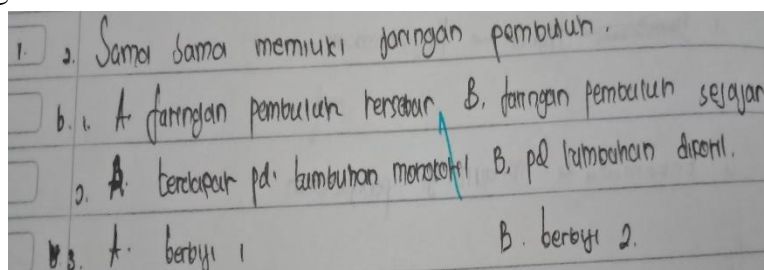 1. a. Sama sama memiliki jaringan pembuluh.
b. 1. A. jaringan pembuluh tersebar B. jaringan pembuluh sejajar
2. A. terdapat pd. tumbuhan monokotil B. pd tumbuhan dikotil.
3. A. berbiji 1 B. berbiji 2.